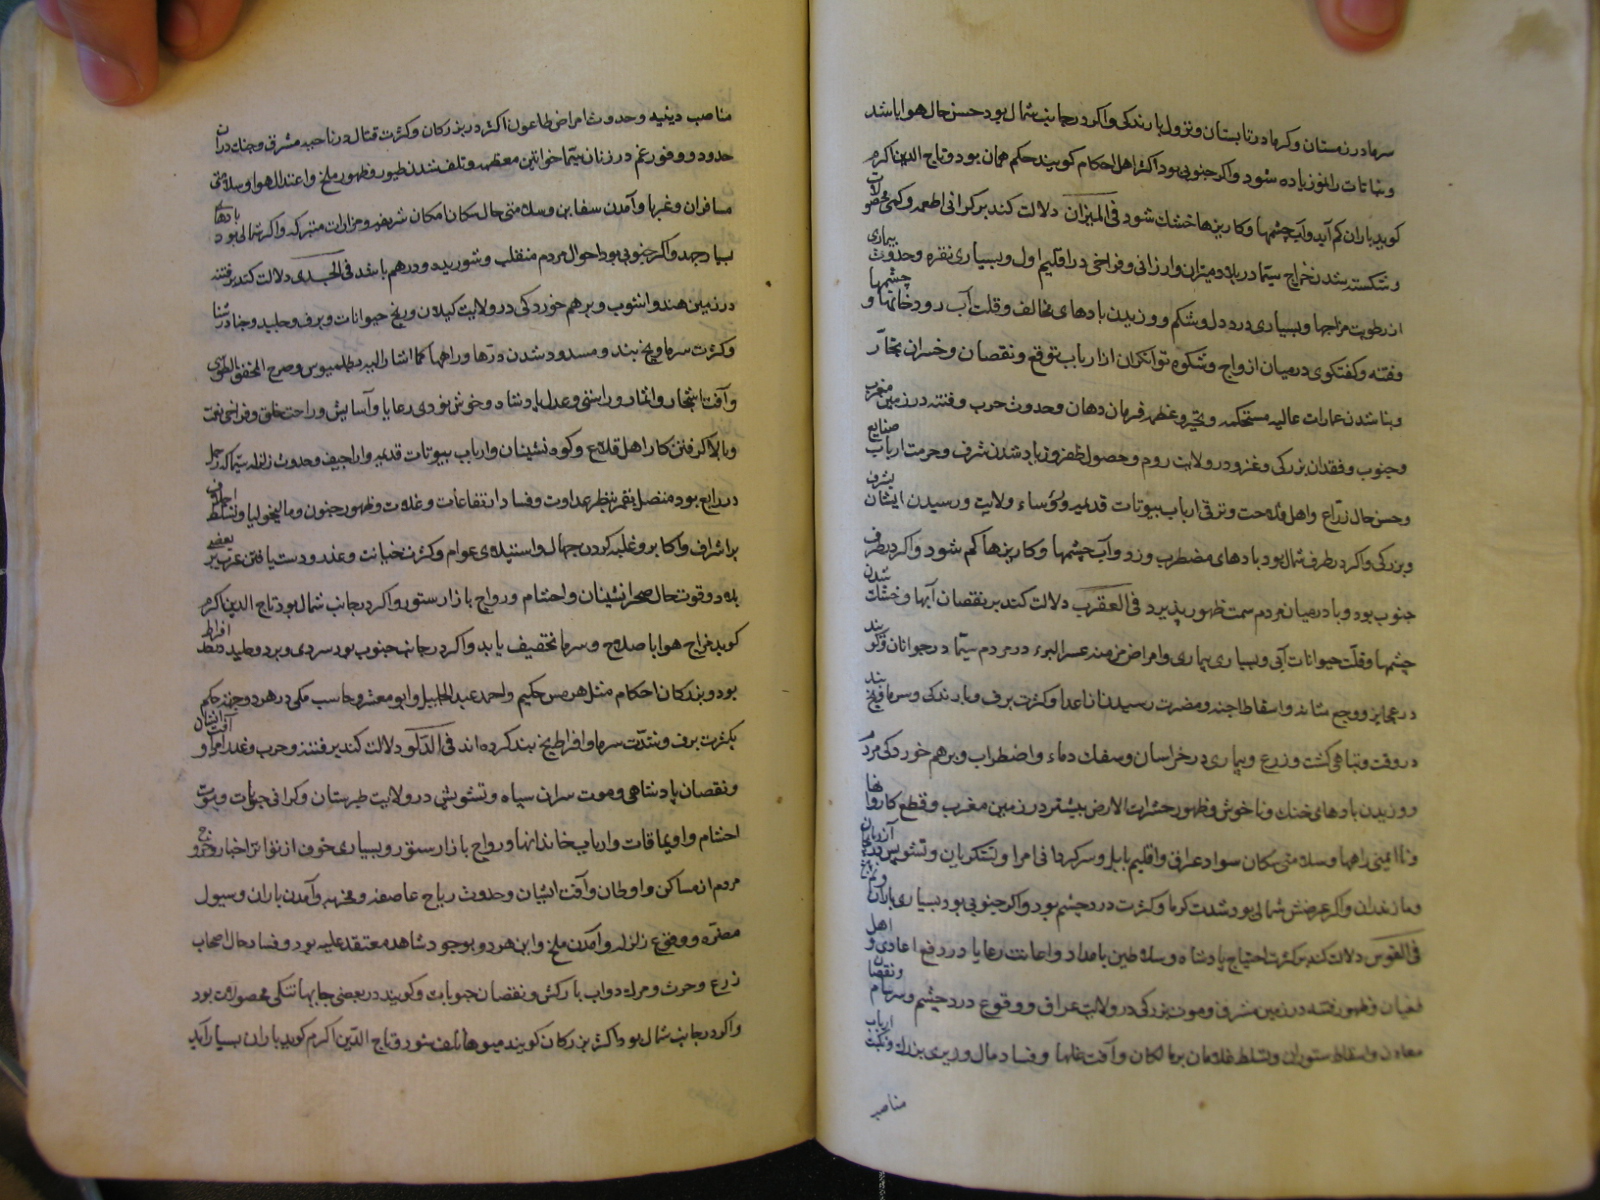 سرما در زمستان وکرما در تابستان ونزول بارندکی واکر در جانب شمال بود حسن حال هوا باشد
ونباتات را نوز زیاده شود واکر جنوبی بود اکثر اهل احکام کویند حکم همان بود وتاج الدین اکرم
کوید باران کم آید وآب چشمها وکاریزها خشک شود فی المیزان دلالت کند بر کرانی اطعمه وکمی محصولات
وشکسته شدن نخراج سیّما در بلاد میزان وارزانی وفراخی در اقلیم اول وبسیاری نقره وحدوث بیماری
از رطوبت مزاجها وبسیاری درد دل وشکم ووزیدن بادهای مخالف وقلت آب رودخانها و چشمها
وفتنه وکفتکوی در میان ازواج وشکوه توانکران از ارباب توقع ونقصان وخسران تجار
وبنا شدن عمارات عالیه مستحکمه وتحیر وعظمه فرمان دهان وحدوث حرب وفتنه در زمین مغرب
وجنوب وفقدان بزرکی وغزو در ولایت روم وحصول ظفر وزیاد شدن شرف وحرمت ارباب صنایع
وحسن حال زرّاع واهل فلاحت وترقی ارباب بیوتات قدیمه ورؤساء ولایت ورسیدن ایشان بشرف
وبزرکی واکر در طرف شمال بود بادهای مضطرب وزد وآب چشمها وکاریزها کم شود واکر در طرف
جنوب بود وبا در میان مردم سمت ظهور پذیرد فی العقرب دلالت کند بر نقصان آبها وخشک شدن
چشمها وقلت حیوانات آبی وبسیاری بیماری وامراض مزمنه عسر البرء در مردم سیّما در جوانان
در عجایز ووجع مثانه واسقاط اجنه ومضرت رسیدن از اعدا وکثرت برف وبارندکی وسرما ویخ بند
در وقت وتباهی کشت وزرع وبیماری در خراسان وسفک دماء واضطراب وبرهم خوردکی مردم
ووزیدن بادهای خنک وناخوش وظهور حشرات الارض بیشتر در زمین مغرب وقطع کاروانها
ونا ایمنی راهها وسلامتی سکان سواد عراق واقلیم بابل وسرکردانی امرا ولشکریان وتشویش در آذربایجان
ومازندران واکر عرضش شمالی بود شدت کرما وکثرت درد چشم بود واکر جنوبی بود بسیاری باران
فی القوس دلالت کند بر کثرت احتیاج پادشاه وسلاطین بامداد واعانت رعایا در دفع اعادی و اهل
فغیان وظهور فتنه در زمین مشرق وموت بزرکی در ولایت عراق ووقوع درد چشم وسرسام ونقصان
معادن واسقاط ستوران وتسلط غلامان بر مالکان وآفت غلها وفساد مال وزیری بزرک ونکبت ارباب
مناصب
مناصب دینیه وحدوث امراض طاعون اکثر در بزرکان وکثرت قتال در ناحیه مشرق وجنک در آن
حدود ووفور غم در زنان سیّما خواتین معظمه وتلف شدن طیور وظهور ملخ واعتدال هوا وسلامتی
مسافران وغربا وآمدن سفاین وسلامتی حال سکان امکان شریفه ومزارات متبرکه واکر شمالی بود بادهای
بسیار جهد واکر جنوبی بود احوال مردم منقلب وشوریده ودرهم باشد فی الجدی دلالت کند بر فتنه
در زمین هند وآشوب وبرهم خوردکی در ولایت کیلان ورنج حیوانات وبرف وجلید
وکثرت سرما ویخ بند ومسدود شدن درّها وراهها کما اشار الیه بطلمیوس وصرح المحقق الطوسی
وآفت اشجار واثمار وراستی وعدل پادشاه وخوش نودی رعایا وآسایش وراحت خلق وفراخی نعمت
وبالا کرفتن کار اهل قلاع وکوه نشینان وارباب بیوتات قدیمه واراجیف وحدوث زلزله سیّما که زحل
در رابع بود متصل بقمر بنظر عداوت وفساد ارتفاعات وغلات وظهور جنون ومالیخولیا وتسلط اجلاف
بر اشراف واکابر وغلبه کردن جهال واستیلای عوام وکثرت خیانت وغدر ودست یافتن عرب بر بعضی
بلاد وقوت حال صحرانشینان واحتشام ورواج بازار ستور واکر در جانب شمال بود تاج الدین اکرم
کوید مزاج هوا باصلاح وسرما تخفیف یابد واکر در جانب جنوب بود سردی وبرد وجلید افراط
بود وبزرکان احکام مثل هرمس حکیم واحمد عبد الجلیل وابو معشر وحاسب مکی در هر دو جهت حکم
بکثرت برف وشدّت سرما وافراط یخ بند کرده اند فی الدلو دلالت کند بر فتنه وحرب وغدر امرا وآفت ایشان
ونقصان پادشاهی وموت سران سپاه وتشویش در ولایت طبرستان وکرانی حبوبات
احتشام واویماقات وارباب خاندانها ورواج بازار ستور وبسیاری خوف از تواتر اخبار وخروج
مردم از مساکن واوطان وآفت ایشان وحدوث ریاح عاصفه ومخربه وآمدن باران وسیول
مضرّه ووقوع زلزله وآمدن ملخ واین هر دو بوجود شاهد معتقد علیه بود وفساد حال اصحاب
زرع وحرث ومرک دواب بارکش ونقصان حبوبات وکویند در بعضی جایها تنکی محصولات بود
واکر در جانب شمال بود اکثر بزرکان کویند میوها تلف شود وتاج الدّین اکرم کوید باران بسیار آید